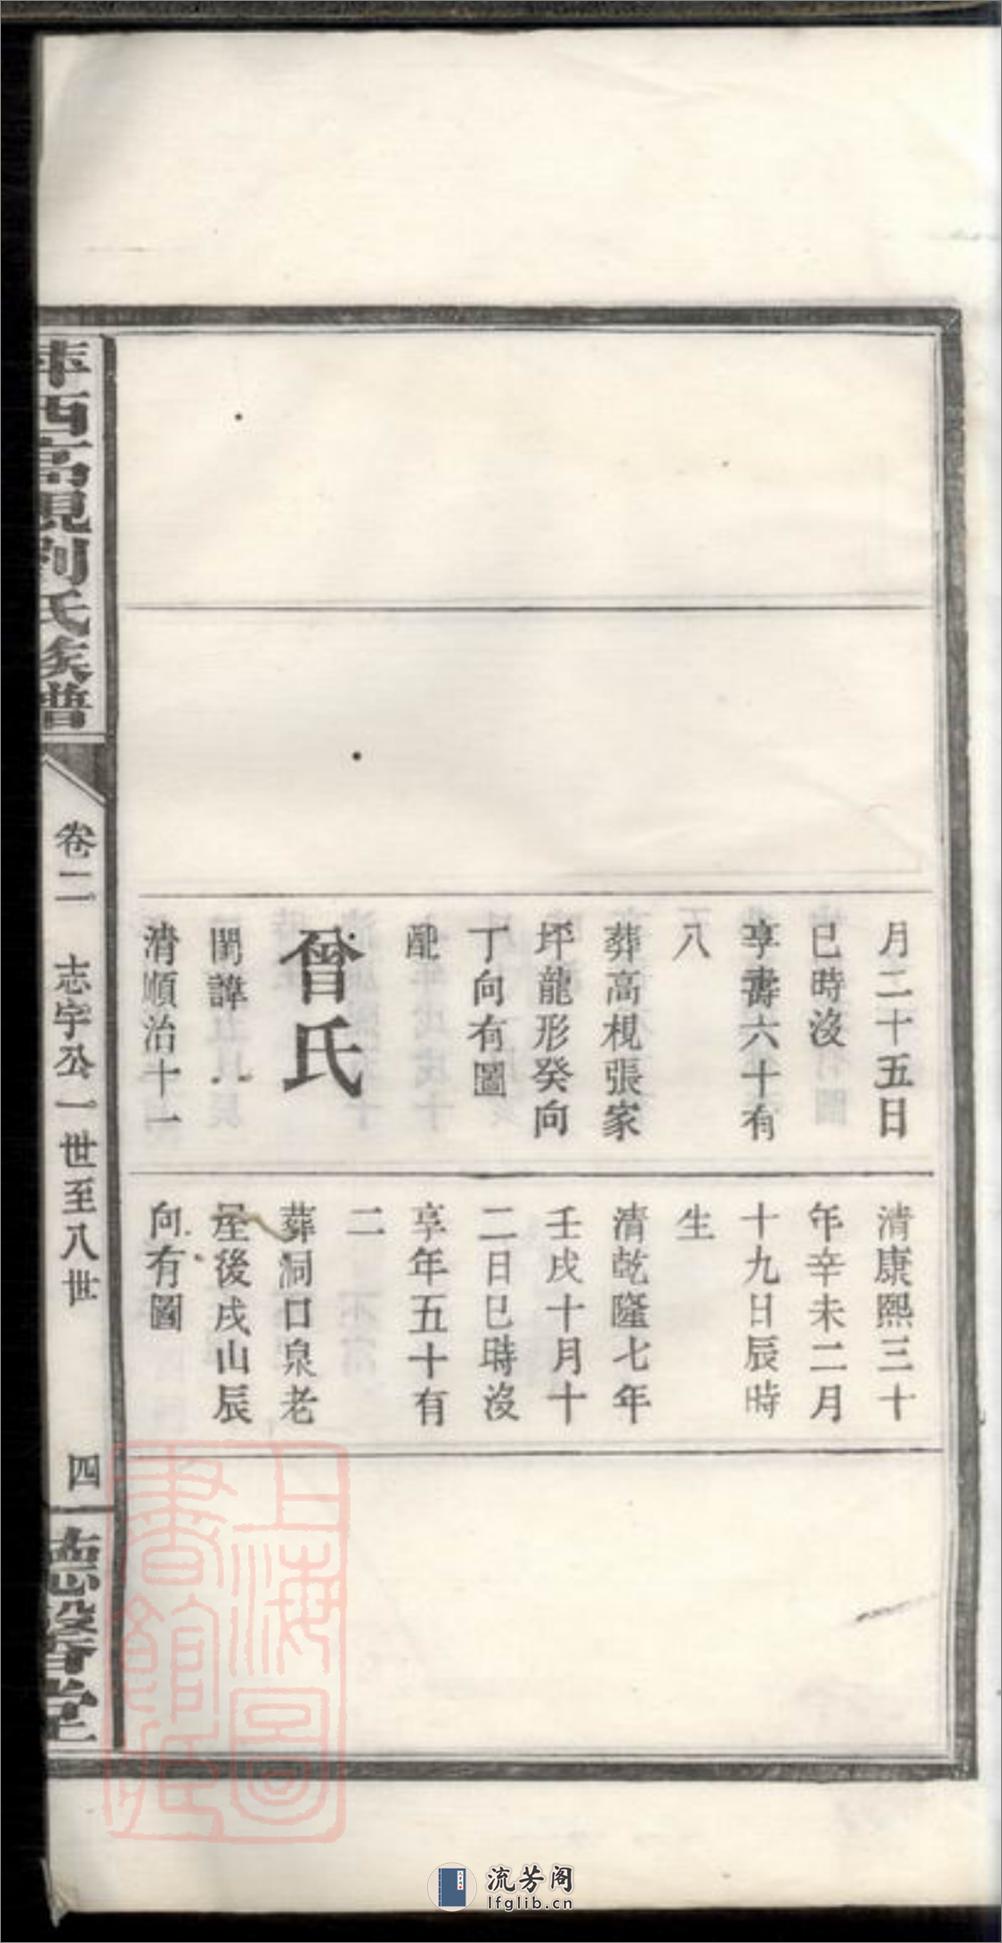 月二十五日
巳時沒
享壽六十有
八
葬高梘張家
坪龍形癸向
丁向有圖
配
晉氏
閨諱
清順治十一
清康熙三十
年辛未二月
十九日辰時
生
清乾隆七年
壬戌十月十
二日巳時沒
享年五十有
二
葬洞口泉老
屋後戌山辰
向有圖
萍西高梘劉氏族譜
卷二 志宇公一世至八世
四
德馨堂
上海圖
書館藏
流芳阁
lfglib.cn